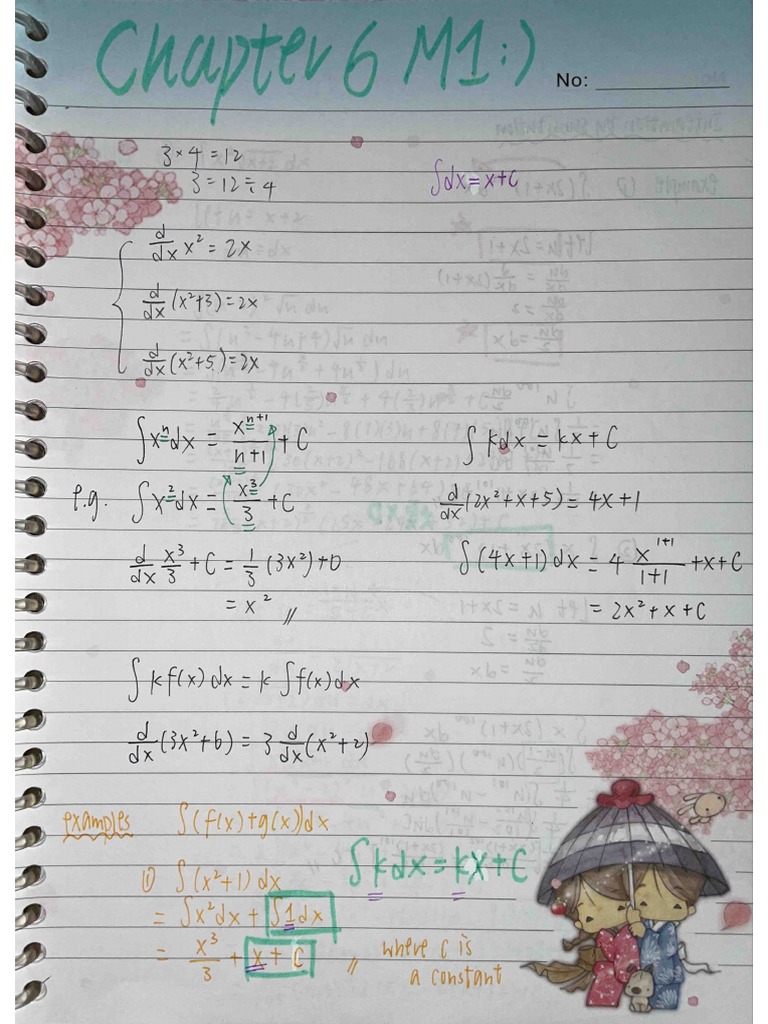 Chapter 6 M1:)
No:
3×4=12
3=12÷4
∫dx=x+C
d/dx x² = 2x
d/dx (x²+3) = 2x
d/dx (x²+5) = 2x
∫xⁿdx = xⁿ⁺¹/n+1 + C
∫kdx = kx+C
e.g. ∫x²dx = x³/3 + C
d/dx (2x²+x+5) = 4x+1
d/dx x³/3 + C = 1/3 (3x²)+0
= x² //
∫(4x+1)dx = 4 x¹⁺¹/1+1 + x + C
= 2x²+x+C
∫kf(x)dx = k∫f(x)dx
d/dx (3x²+6) = 3 d/dx (x²+2)
examples ∫(f(x)+g(x))dx
① ∫(x²+1)dx
∫kdx=kx+C
= ∫x²dx + ∫1dx
= x³/3 + x + C // where C is
a constant